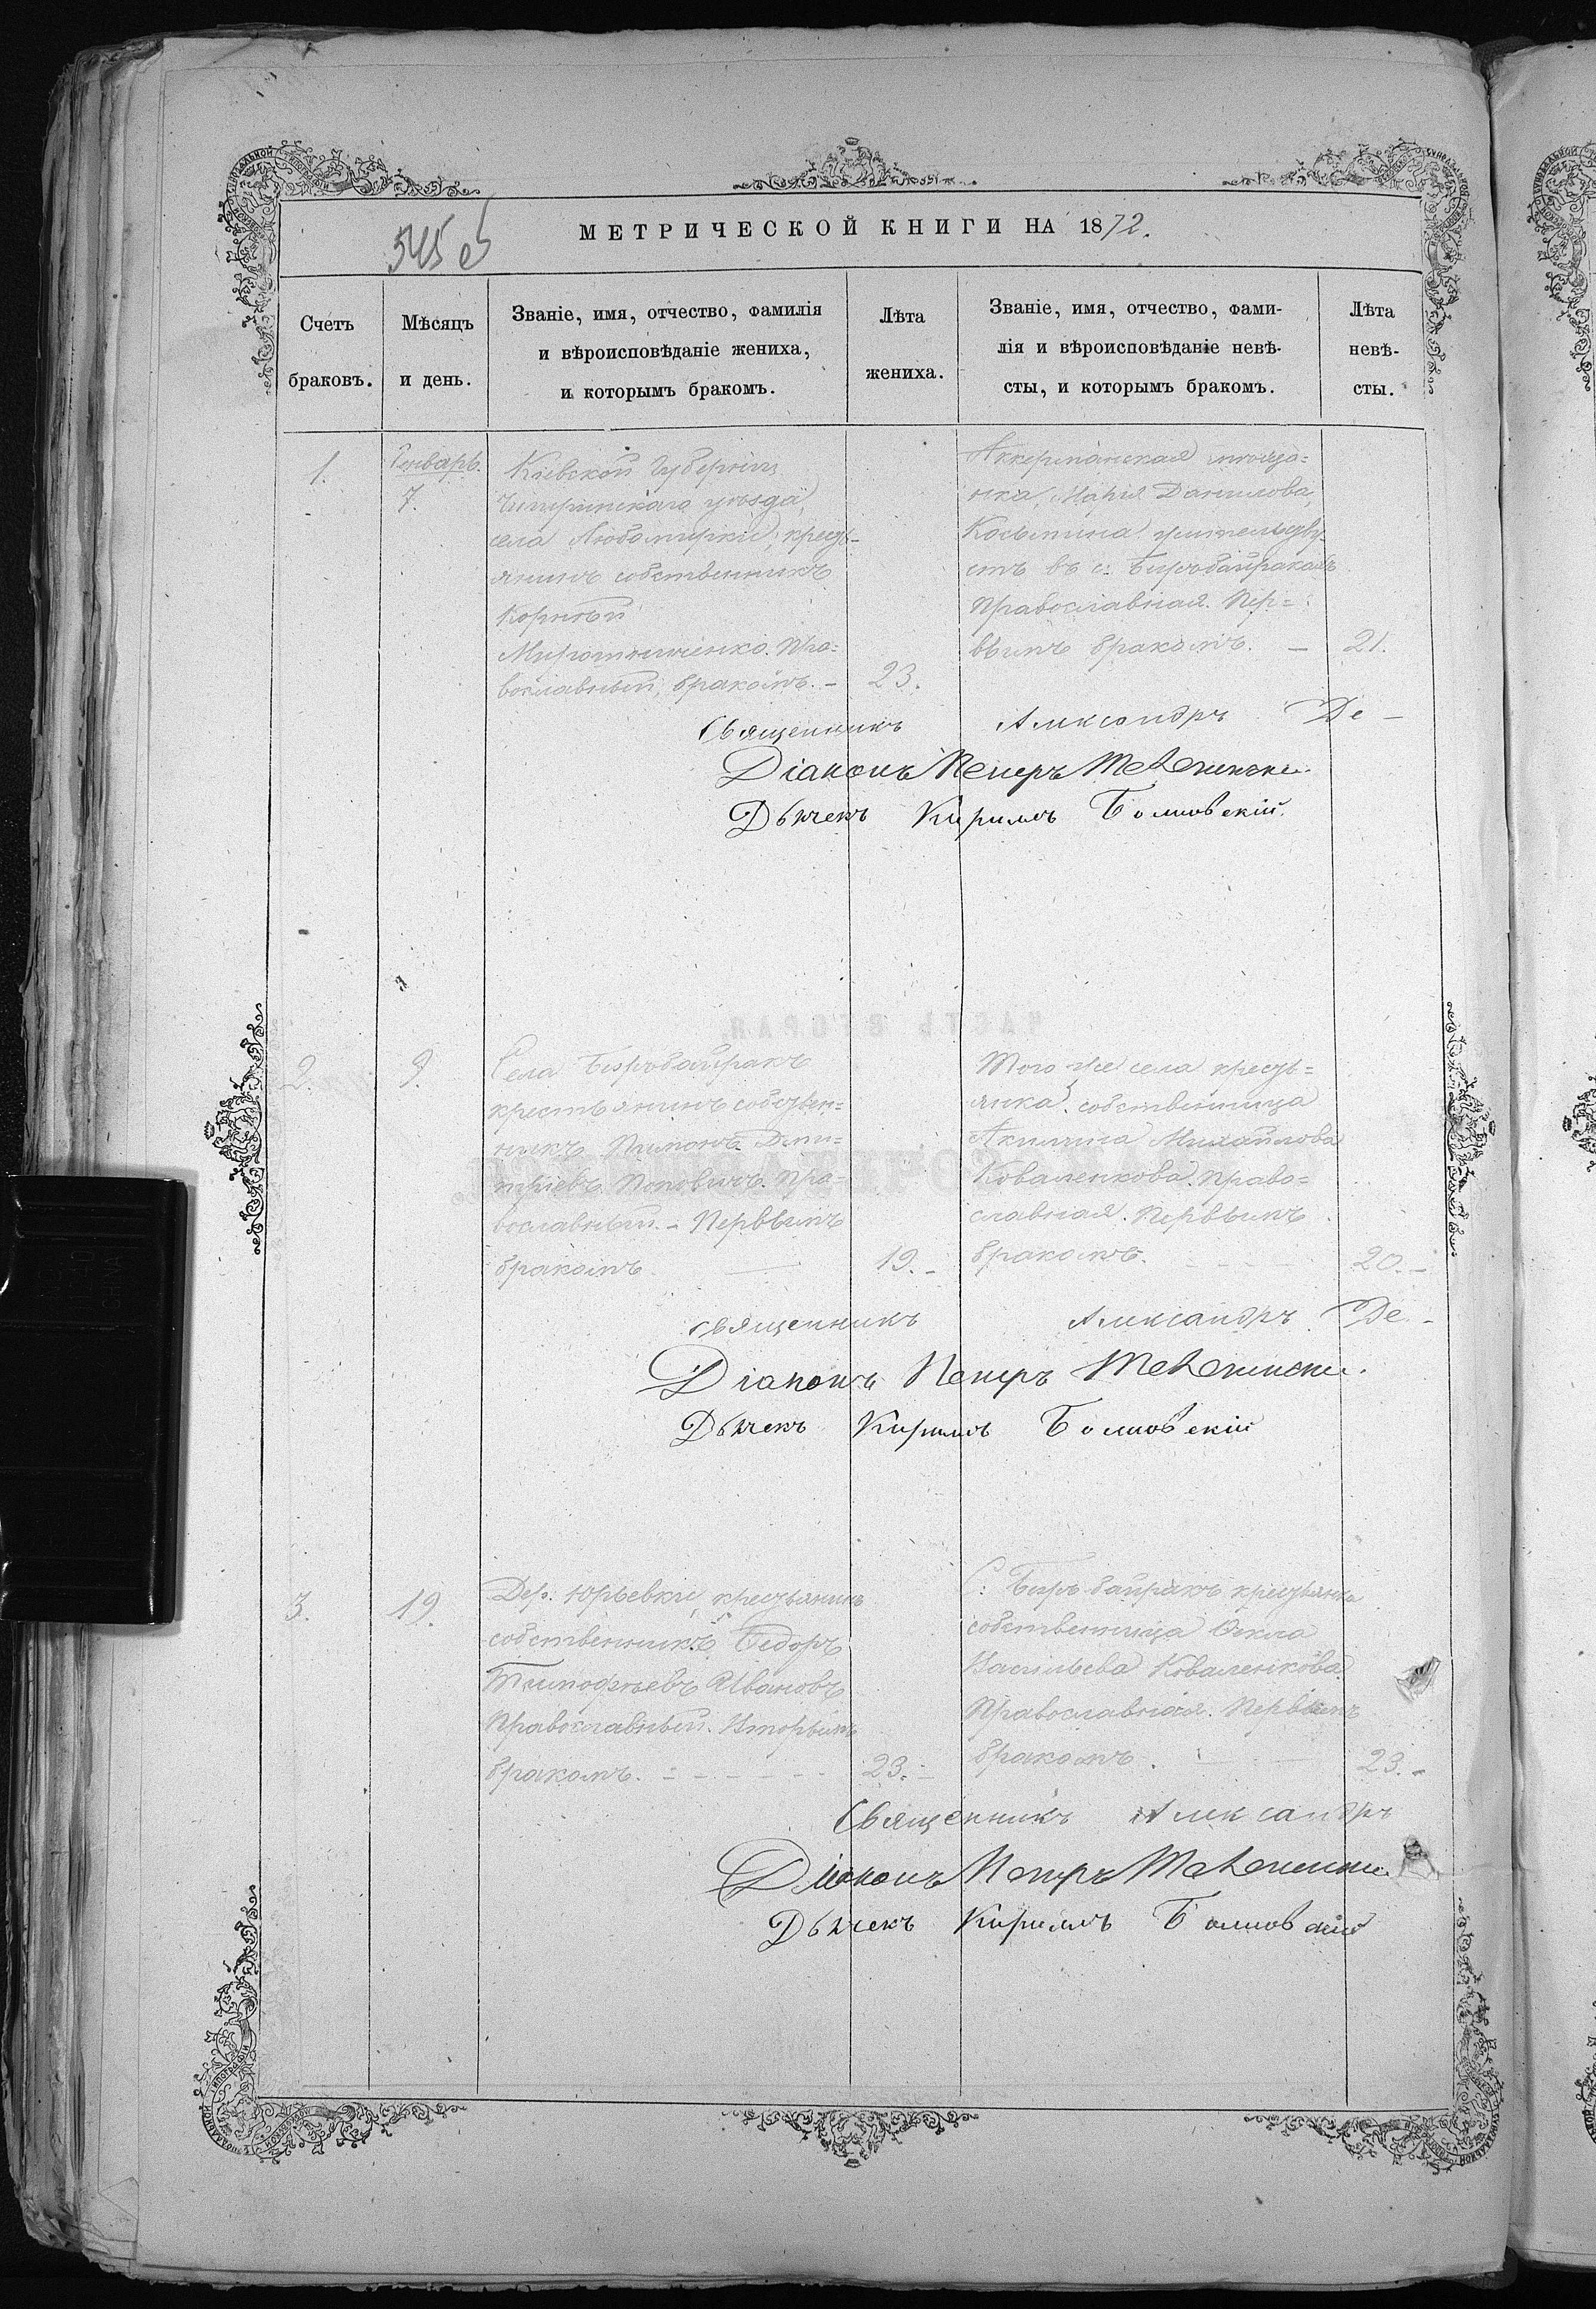 545 об
МЕТРИЧЕСКОЙ КНИГИ НА 1872.
Счетъ браковъ.
Мѣсяцъ и день.
Званіе, имя, отчество, фамилія
и вѣроисповѣданіе жениха,
и которымъ бракомъ.
Лѣта
жениха.
Званіе, имя, отчество, фами-
лія и вѣроисповѣданіе невѣ-
сты, и которымъ бракомъ.
Лѣта
невѣ-
сты.
1.
Январь.
7.
Кіевской губерніи
Чигиринскаго уѣзда,
села Любомирки, кресть-
янинъ собственникъ
Корнѣй
Мирошниченко. Пра=
вославный, бракомъ. –
23.
Аккерманская мѣща=
нка, Марія Данилова,
Косьмина жительству-
етъ въ с. Бирбайракахъ
Православная. Пер=
вымъ бракомъ. –
21.
Священникъ Александръ Де –
Діаконъ Петръ
Дьячекъ Кириллъ
2.
9.
Села Бирбайракъ
крестьянинъ собствен=
никъ Пименъ Дими=
тріевъ Поповичъ. Пра=
вославный. – Первымъ
бракомъ
19. –
Того же села кресть=
янка, собственница
Акилина Михайлова
Коваленкова. Право=
славная. Первымъ
бракомъ.
20. –
Священникъ Александръ Де –
Діаконъ Петръ
Дьячекъ Кириллъ
3.
19.
Дер. Юрьевки, крестьянинъ
собственникъ Ѳедоръ
Тимофѣевъ Ивановъ
Православный. Вторымъ
бракомъ.
23. –
С. Бирбайракъ крестьянка
собственница Ѳекла
Васильева Коваленкова
Православная. Первымъ
бракомъ.
23. –
Священникъ Александръ
Діаконъ Петръ
Дьячекъ Кириллъ